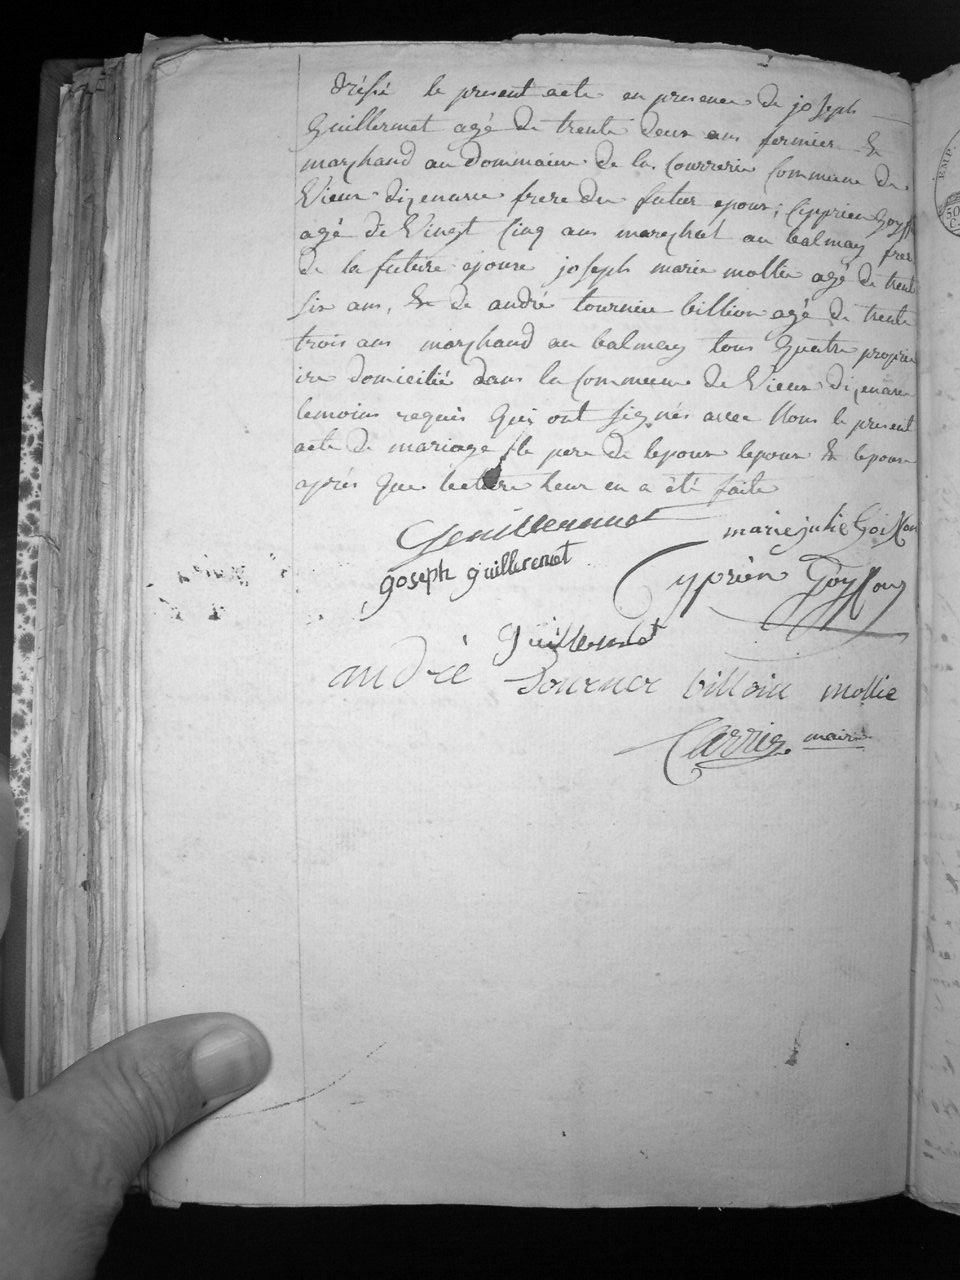 dressé le present acte en presence de joseph
Guillermet agé de trente deux ans fermier &
marchand au dommaine de la Courrerie Commune de
Vieux dizenave frere du futur epoux; Cyprien Goyffon
agé de Vingt Cinq ans marechal au balmay frere
de la future epouse joseph marie mollie agé de trente
six ans, & de andré tournier billion agé de trente
trois ans marchand au balmay tous quatre proprie
ire domicilié dans la Commune de Vieux dizenave
temoins requis qui ont signés avec Nous le present
acte de mariage le pere de lepoux lepoux & lepouse
aprés que lecture leur en a été faite
Guillermet marie julie Goiffon
joseph guillermet Cyprien Goyffon
guillermet
andré tournier billion mollie
Carrier maire
EMP.
50
C.